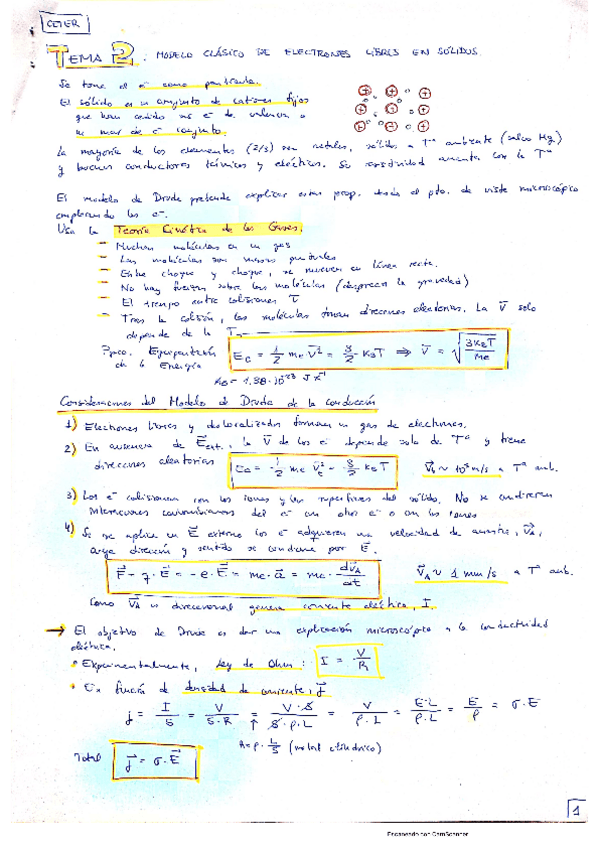 CETER
TEMA 2: MODELO CLÁSICO DE ELECTRONES LIBRES EN SÓLIDOS.
Se toma el e⁻ como partícula.
El sólido es un conjunto de cationes fijos
que han cedido sus e⁻ de valencia a
un mar de e⁻ conjunto.
La mayoría de los elementos (2/3) son metales, sólidos a Tª ambiente (salvo Hg)
y buenos conductores térmicos y eléctricos. Su resistividad aumenta con la Tª
El modelo de Drude pretende explicar estas prop. desde el pto. de vista microscópico
empleando los e⁻.
Usa la Teoría Cinética de los Gases.
- Muchas moléculas en un gas
- Las moléculas son masas puntuales
- Entre choque y choque, se mueven en línea recta.
- No hay fuerzas sobre las moléculas (desprecia la gravedad)
- El tiempo entre colisiones τ
- Tras la colisión, las moléculas toman direcciones aleatorias. La v̅ solo
depende de la T
Ppio. Equipartición de la Energía
Ec = 1/2 me v̅² = 3/2 kB T ⇒ v̅ = √(3kBT/me)
kB = 1,38·10⁻²³ J K⁻¹
Consideraciones del Modelo de Drude de la conducción
1) Electrones libres y deslocalizados forman un gas de electrones.
2) En ausencia de E⃗ext., la v̅ de los e⁻ depende solo de Tª y tiene
direcciones aleatorias Ec = 1/2 me v̅t² = 3/2 kB T v̅t ~ 10⁵ m/s a Tª amb.
3) Los e⁻ colisionan con los iones y las superficies del sólido. No se consideran
interacciones coulombianas del e⁻ con otros e⁻ o con los iones
4) Si se aplica un E⃗ externo los e⁻ adquieren una velocidad de arrastre, v⃗A,
cuya dirección y sentido se condiciona por E⃗.
F⃗ = q·E⃗ = -e·E⃗ = me·a⃗ = me·dv⃗A/dt v⃗A ~ 1 mm/s a Tª amb.
Como v⃗A es direccional genera corriente eléctrica, I.
→ El objetivo de Drude es dar una explicación microscópica a la conductividad
eléctrica.
• Experimentalmente, Ley de Ohm: I = V/R
• En función de densidad de corriente, j⃗
j = I/S = V/S·R = V·S/S·ρ·L = V/ρ·L = E·L/ρ·L = E/ρ = σ·E
R = ρ·L/S (metal cilíndrico)
Total j⃗ = σ·E⃗
1
Escaneado con CamScanner